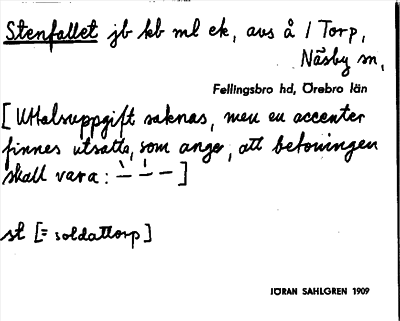 Stenfallet jb kb ml ek, avs å 1 Torp,
Näsby sn,
Fellingsbro hd, Örebro län
[Uttalsuppgift saknas, men en accenter
finnes utsatta, som anger, att betoningen
skall vara: –̀ –́ – ]
st [= soldattorp]
JÖRAN SAHLGREN 1909